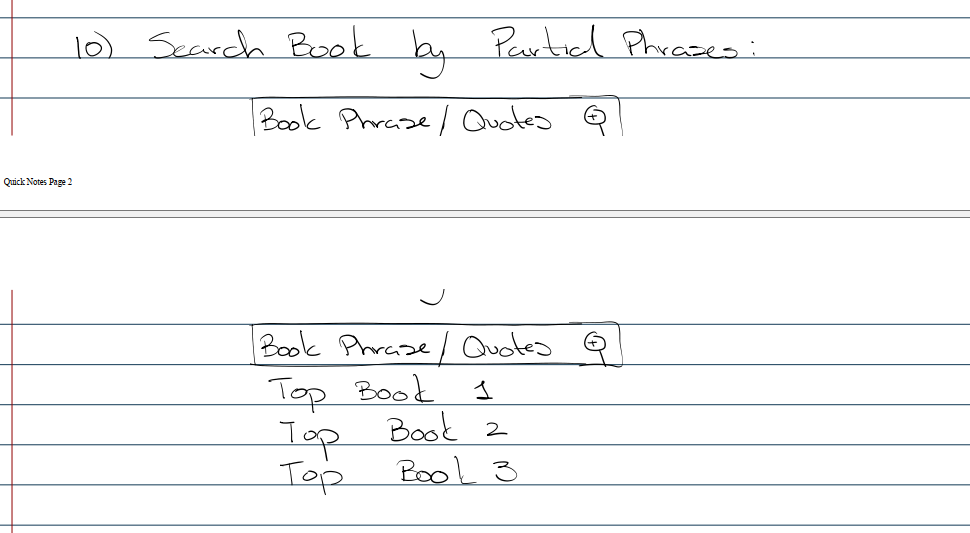 10) Search Book by Partial Phrases:
Book Phrase/ Quotes
Quick Notes Page 2
Book Phrase/ Quotes
Top Book 1
Top Book 2
Top Book 3